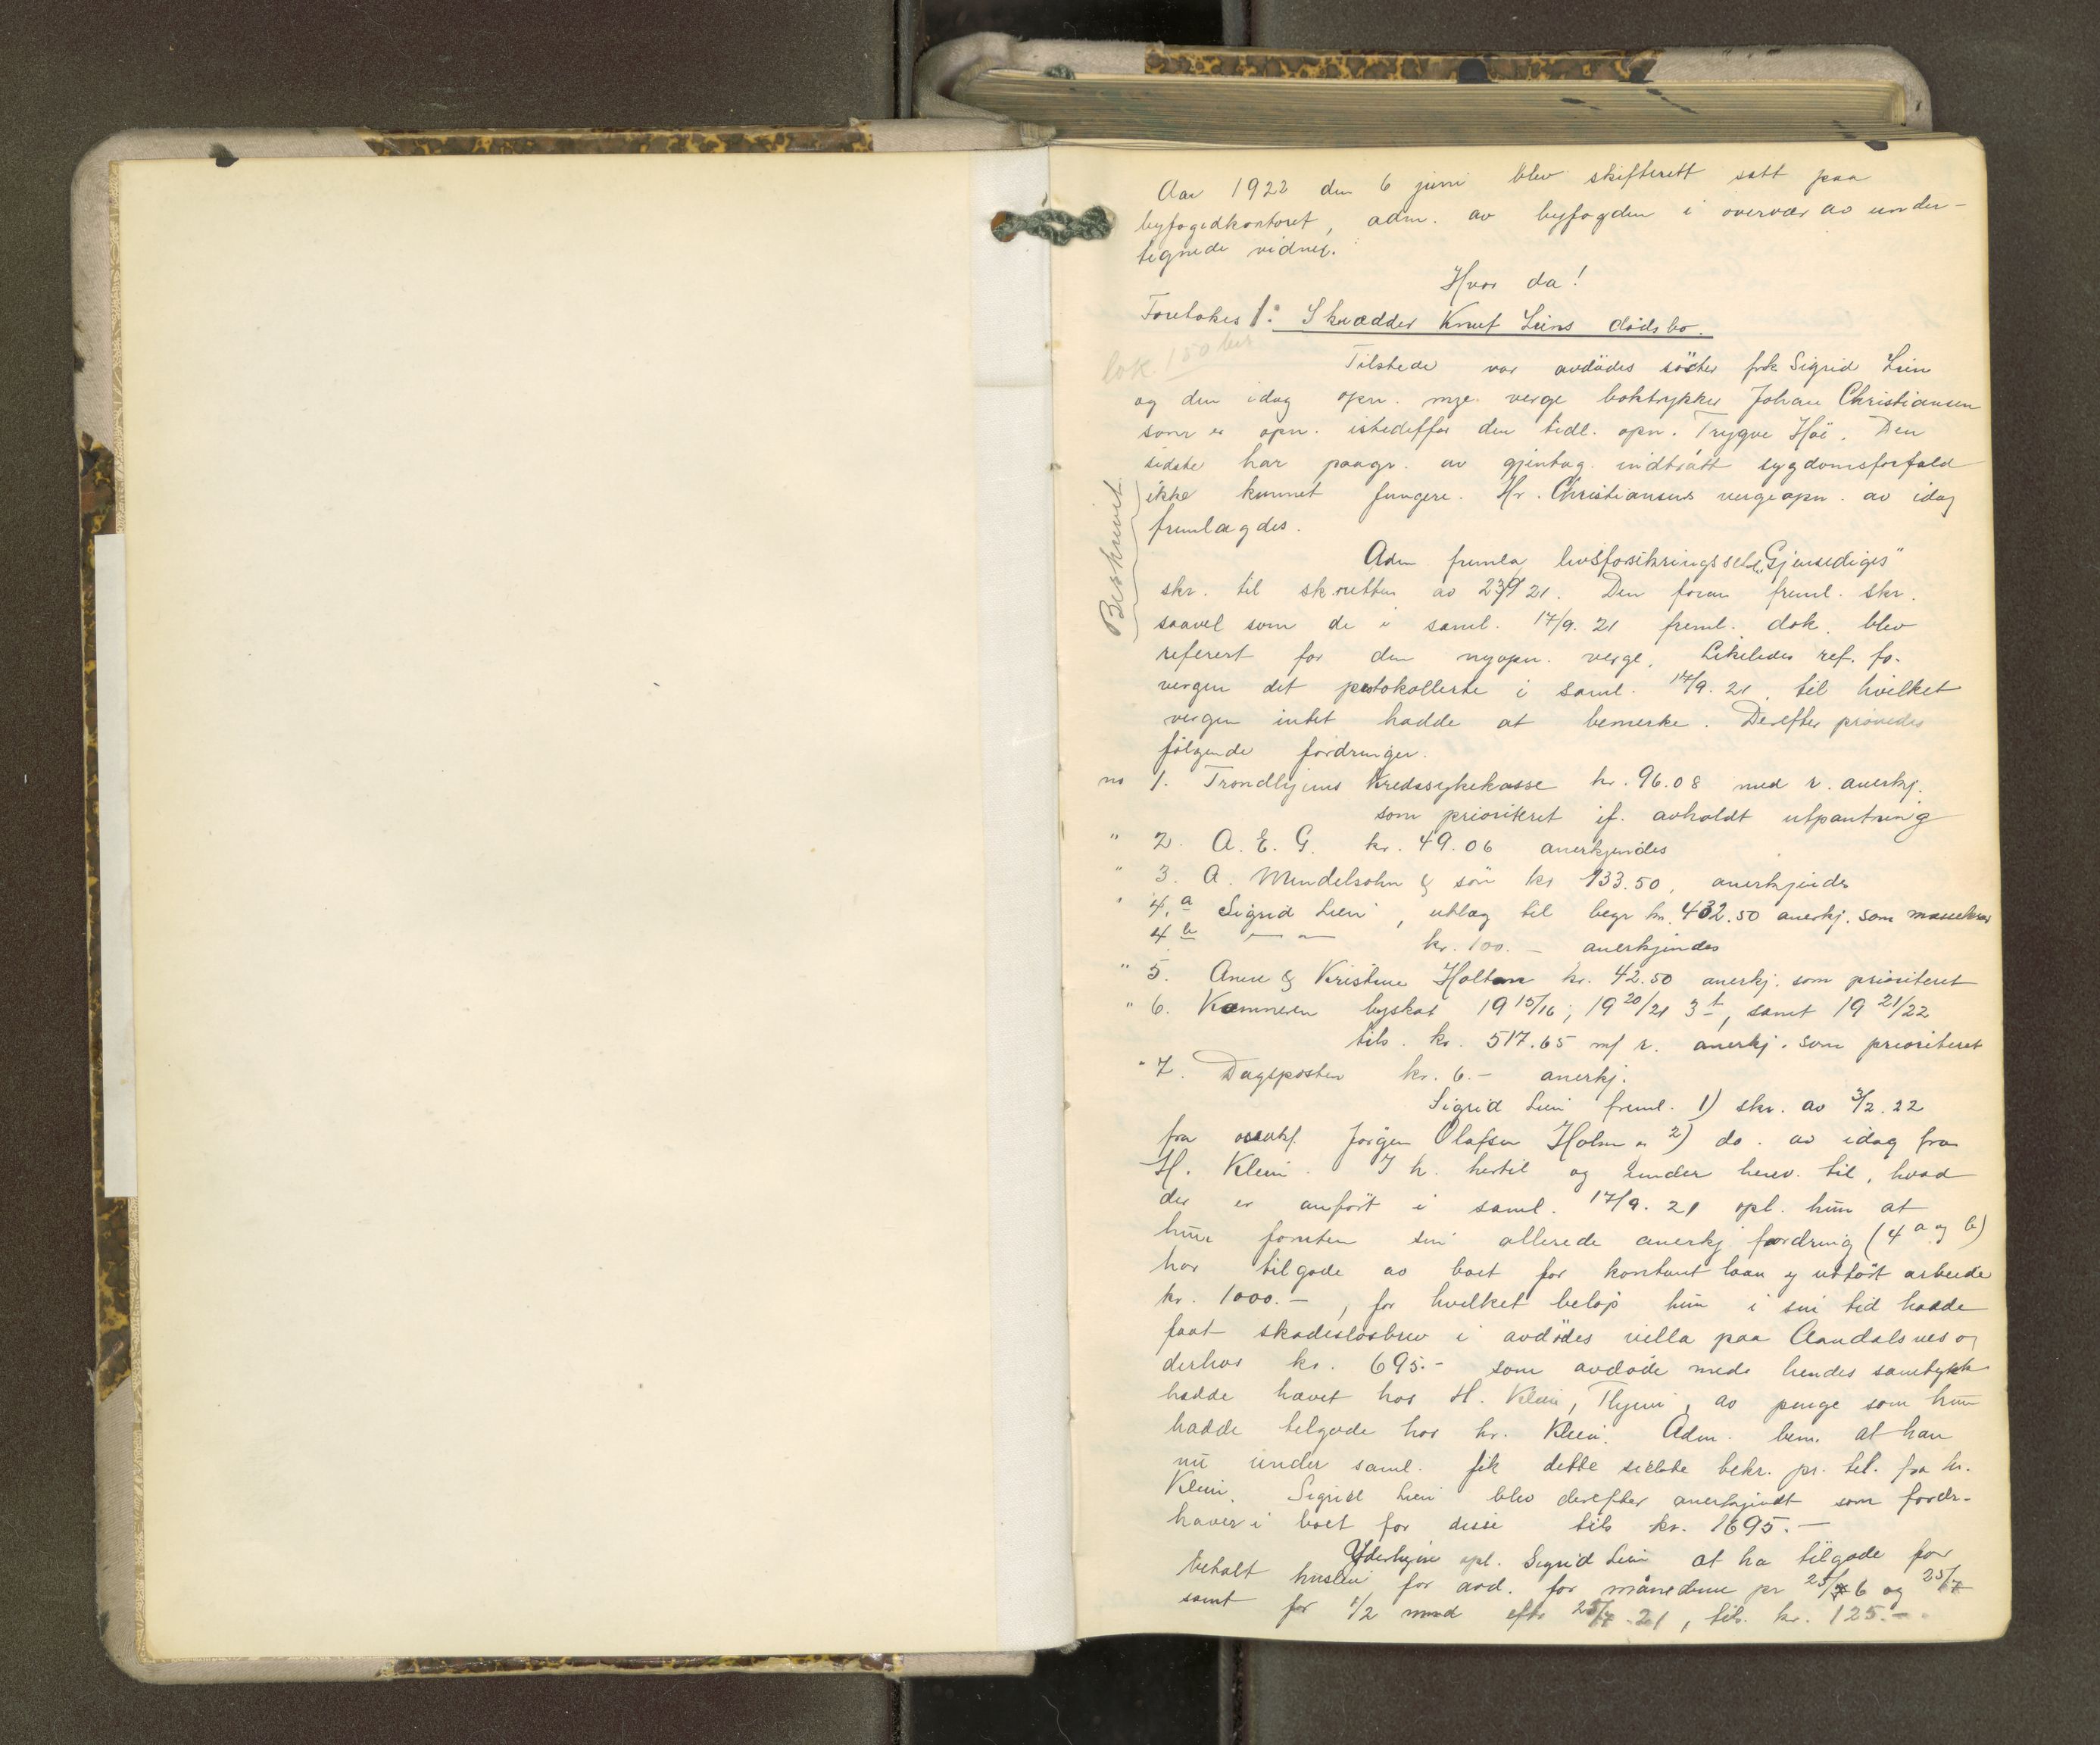 Aar 1922 den 6 juni blev skifterett satt paa
byfogedkontoret, adm. av byfogden i overvær av under-
tegnede vidner.
Hvor da!
Foretokes 1: Skrædder Knut Liens dödsbo.
bok. 150
Tilstede var avdödes söster frk Sigrid Lien
og den idag opn. mge. verge boktrykker Johan Christiansen
som er opn. istedetfor den tidl. opn. Trygve Höi. Den
sidste har paagr. av gjentag. indtraått sygdomsforfald
ikke kunnet fungere. Hr. Christiansens vergeopn. av idag
fremlagdes.
Beskrevet
Adm fremla livsforsikringsselsk. "Gjensidiges"
skr. til sk.retten av 23/9 21. Den foran freml. skr.
saavel som de i saml. 17/9. 21 freml. dok. blev
referert for den nyopn. verge. Likeledes ref. for
vergen det protokollerte i saml. 17/9. 21, til hvilket
vergen intet hadde at bemerke. Derefter prövedes
fölgende fordringer.
no 1. Trondhjems Kredssykekasse kr. 96.08 med r. anerkj.
som prioritert if. avholdt utpantning
" 2. A. E. G. kr. 49.06 anerkjendes
" 3. A. Mendelsohn & sön kr 133.50, anerkjendes
" 4.a Sigrid Lien, utlæg til begr kr. 432.50 anerkj. som massekrav
4 b — " — kr. 100.– anerkjendes
" 5. Anne & Kristine Holtan kr. 42.50 anerkj. som prioritert
" 6. Kæmneren byskat 1915/16; 1920/21 3 t, samt 1921/22
tils. kr. 517.65 m/ r. anerkj. som prioriteret
" 7. Dagsposten kr. 6.– anerkj.
Sigrid Lien freml. 1) skr. av 3/2. 22
fra Jörgen Olafsen Holm og 2) do. av idag fra
H. Klein. I h. hertil og under henv. til, hvad
der er anfört i saml. 17/9. 21 opl. hun at
hun foruten sin allerede anerkj fordring (4 a og b)
har tilgode av boet for kontant laan og utfört arbeide
kr. 1000.–, for hvilket belöp hun i sin tid hadde
faat skadeslösbrev i avdödes villa paa Aandalsnes og
derhos kr. 695.– som avdöde med hendes samtykke
hadde hævet hos H. Klein, Thjem, av penge som hun
hadde tilgode hos hr. Klein. Adm. bem. at han
nu under saml. fik dette sidste bekr. pr. tel. fra hr.
Klein. Sigrid Lien blev derefter anerkjendt som fordr-
haver i boet for disse tils kr. 1695.–
Yderligere opl. Sigrid Lien at ha tilgode for
betalt husleie for avd. for månedene pr 25/6 og 25/7
samt for 1/2 mnd efter 25/7. 21, tils. kr. 125.–